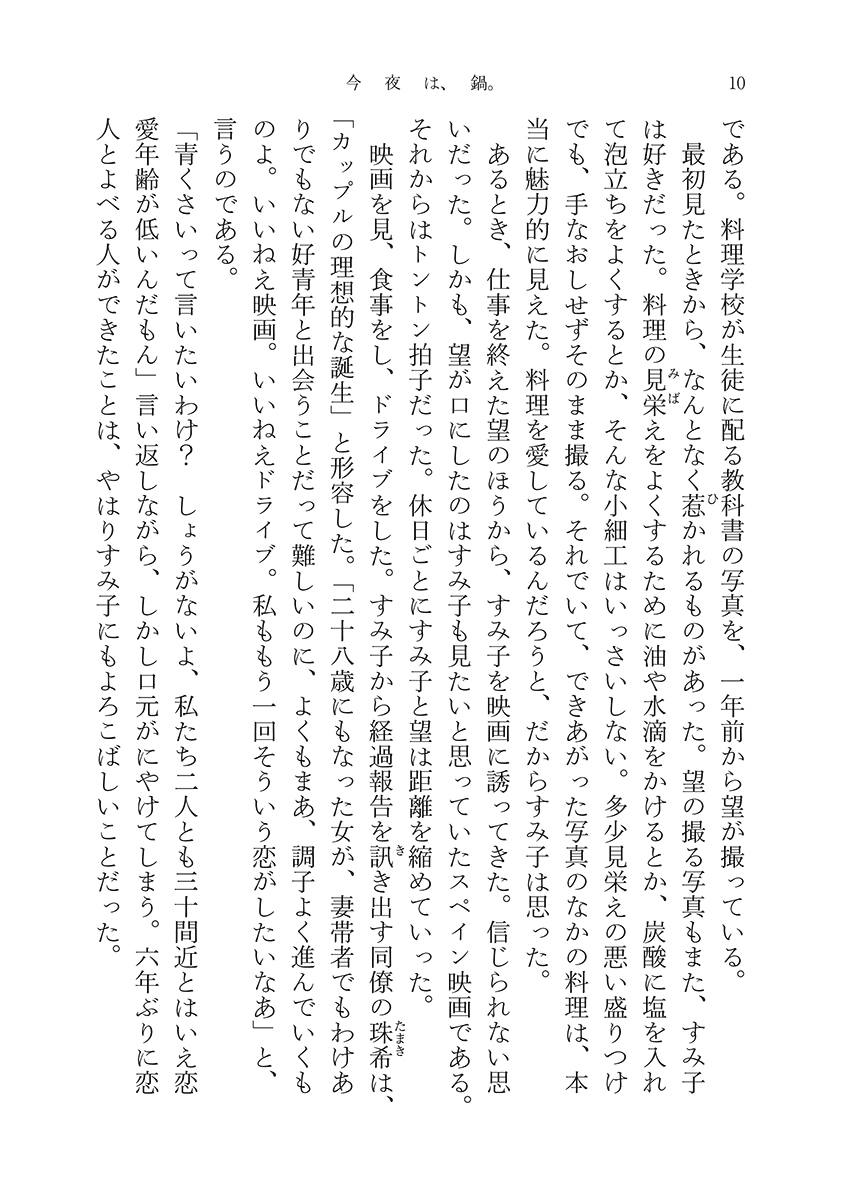 今夜は、鍋。
10
である。料理学校が生徒に配る教科書の写真を、一年前から望が撮っている。
　最初見たときから、なんとなく惹かれるものがあった。望の撮る写真もまた、すみ子
は好きだった。料理の見栄えをよくするために油や水滴をかけるとか、炭酸に塩を入れ
て泡立ちをよくするとか、そんな小細工はいっさいしない。多少見栄えの悪い盛りつけ
でも、手なおしせずそのまま撮る。それでいて、できあがった写真のなかの料理は、本
当に魅力的に見えた。料理を愛しているんだろうと、だからすみ子は思った。
　あるとき、仕事を終えた望のほうから、すみ子を映画に誘ってきた。信じられない思
いだった。しかも、望が口にしたのはすみ子も見たいと思っていたスペイン映画である。
それからはトントン拍子だった。休日ごとにすみ子と望は距離を縮めていった。
　映画を見、食事をし、ドライブをした。すみ子から経過報告を訊き出す同僚の珠希は、
「カップルの理想的な誕生」と形容した。「二十八歳にもなった女が、妻帯者でもわけあ
りでもない好青年と出会うことだって難しいのに、よくもまあ、調子よく進んでいくも
のよ。いいねえ映画。いいねえドライブ。私ももう一回そういう恋がしたいなあ」と、
言うのである。
「青くさいって言いたいわけ？　しょうがないよ、私たち二人とも三十間近とはいえ恋
愛年齢が低いんだもん」言い返しながら、しかし口元がにやけてしまう。六年ぶりに恋
人とよべる人ができたことは、やはりすみ子にもよろこばしいことだった。